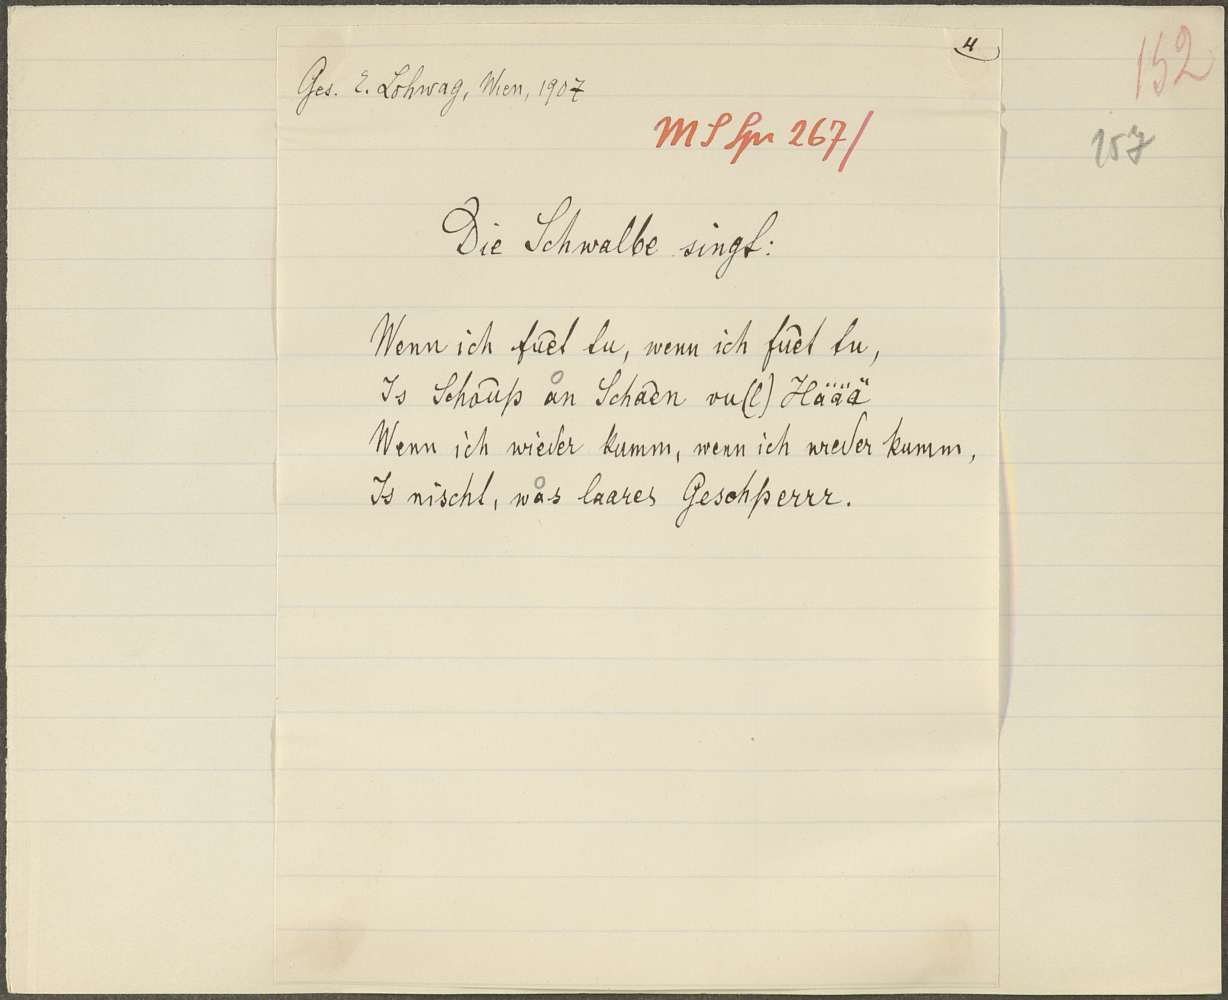 4
152
Ges. E. Lohwag, Wien, 1907
MS Spr 267/
157
Die Schwalbe singt:
Wenn ich fuet tu, wenn ich fuet tu,
Is Schoup ån Schaen vu(l) Häää
Wenn ich wieder kumm, wenn ich wieder kumm,
Is nischt, wås laares Geschperrr.